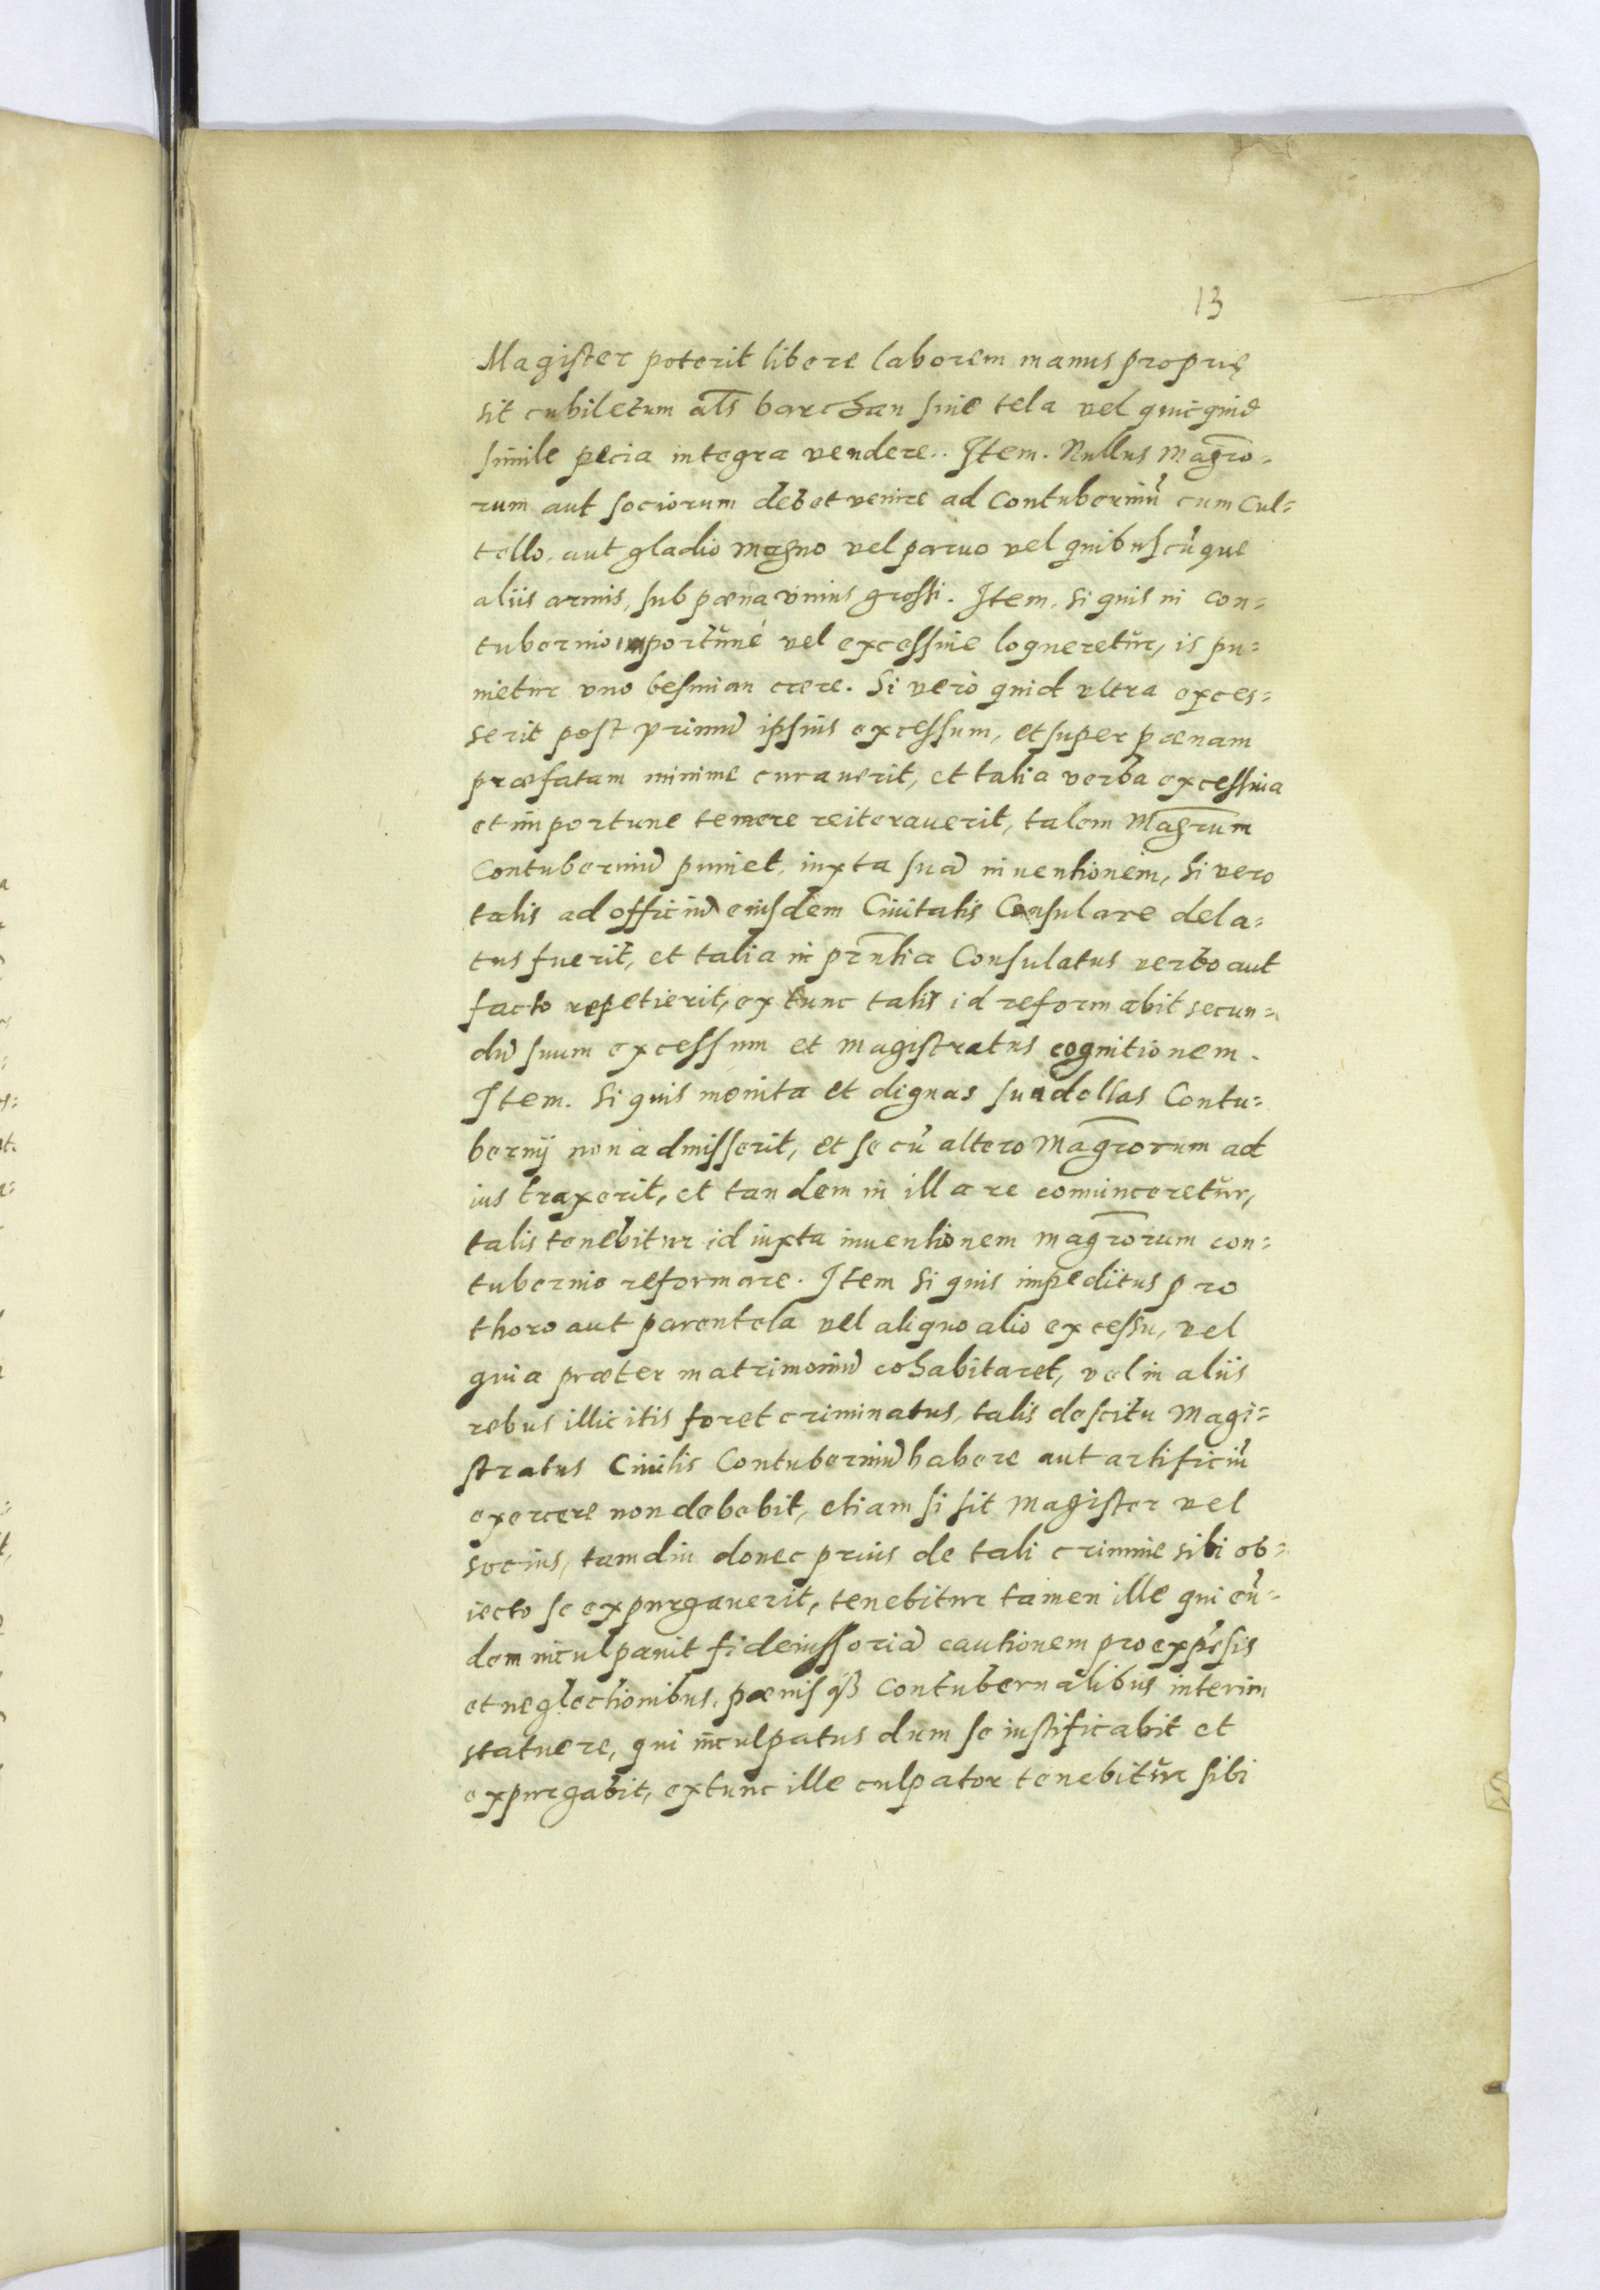 13
Magister poterit libere laborem manus proprię
sit cubiletum al̅s barchan siue tela vel quicquid
simile pecia integra vendere.. Item. Nullus Magr̅o-
rum aut sociorum debet venire ad Contuberniũ cum Cul=
tello, aut gladio magno vel paruo vel quibuscũque
aliis armis, sub pœna vnius grossi. Item, si quis in con=
tubernio importŭné vel excessiue loqueretŭr, is pu=
nietur vno besmian cere. Si verò quid vltra exces=
serit post primũ ipsius excessum, et super pœnam
præfatam minime curauerit, et talia verba excessiua
et importune temere reiterauerit, talem Magr̅um
Contuberniũ puniet, iuxta suã inuentionem, Si vero
talis ad officiũ eiusdem Ciuitatis Consulare dela=
tus fuerit, et talia in prn̅tia Consulatus verbo aut
facto repetierit, extunc talis id reformabit secun=
dũ suum excessum et Magistratus cognitionem.
Item. Si quis monita et dignas suadellas Contu=
bernij non admisserit, et se cũ altero Magr̅orum ad
ius traxerit, et tandem in illa re conuinceretŭr,
talis tenebitur id iuxta inuentionem magr̅orum con=
tubernio reformare. Item Si quis impeditus pro
thoro aut parentela vel aliquo alio excessu, vel
quia præter matrimoniũ cohabitaret, vel in aliis
rebus illicitis foret criminatus, talis de scitu Magi=
stratus Ciuilis Contuberniũ habere aut artificiũ
exercere non debebit, etiam si sit Magister vel
socius, tamdiu donec prius de tali crimine sibi ob=
iecto se expurgauerit, tenebitur tamen ille qui eũ=
dem inculpauit fideiussoriã cautionem pro expẽsis
et neglectionibus, pœnisqȝ Contubernalibus interim
statuere, qui inculpatus dum se iustificabit et
expurgabit, extunc ille culpator tenebitŭr sibi